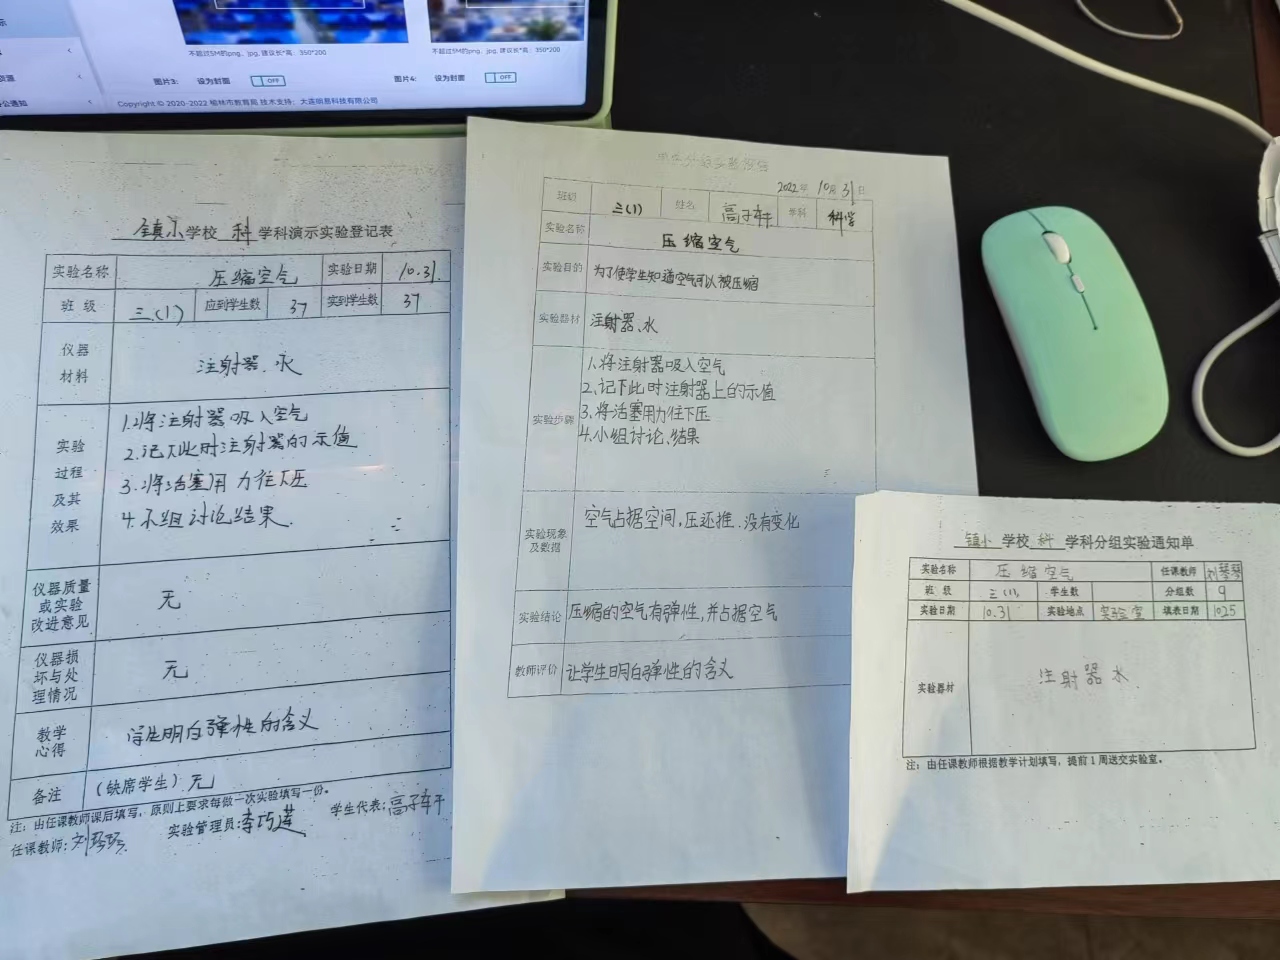 不超过5M的png、jpg, 建议长*高: 350*200
不超过5M的png、jpg, 建议长*高: 350*200
图片3: 设为封面 OFF
图片4: 设为封面 OFF
Copyright © 2020-2022 榆林市教育局 技术支持: 大连明易科技有限公司
镇小学校 科 学科演示实验登记表
实验名称 压缩空气 实验日期 10.31.
班 级 三.(1) 应到学生数 37 实到学生数 37
仪器
材料
注射器、水
实验
过程
及其
效果
1.将注射器吸入空气
2.记下此时注射器的示值
3.将活塞用力往下压
4.小组讨论结果.
仪器质量
或实验
改进意见
无
仪器损
坏与处
理情况
无
教学
心得
学生明白弹性的含义
备注 (缺席学生) 无
注: 由任课教师课后填写, 原则上要求每做一次实验填写一份。
任课教师: 实验管理员:李巧莲 学生代表:高子轩
2022年 10月 31日
班级 三(1) 姓名 高子轩 学科 科学
实验名称 压缩空气
实验目的 为了使学生知道空气可以被压缩
实验器材 注射器、水
实验步骤
1.将注射器吸入空气
2.记下此时注射器上的示值
3.将活塞用力往下压
4.小组讨论、结果
实验现象
及数据
空气占据空间,压还推.没有变化
实验结论 压缩的空气有弹性,并占据空气
教师评价 让学生明白弹性的含义
镇小 学校 科 学科分组实验通知单
实验名称 压缩空气 任课教师 刘琴琴
班 级 三(1) 学生数 分组数 9
实验日期 10.31 实验地点 实验室 填表日期 1025
实验器材 注射器 水
注: 由任课教师根据教学计划填写, 提前 1 周送交实验室。